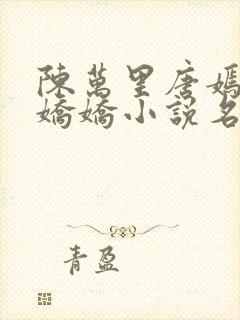 陳萬里唐嫣
嬌嬌小說名
青盈